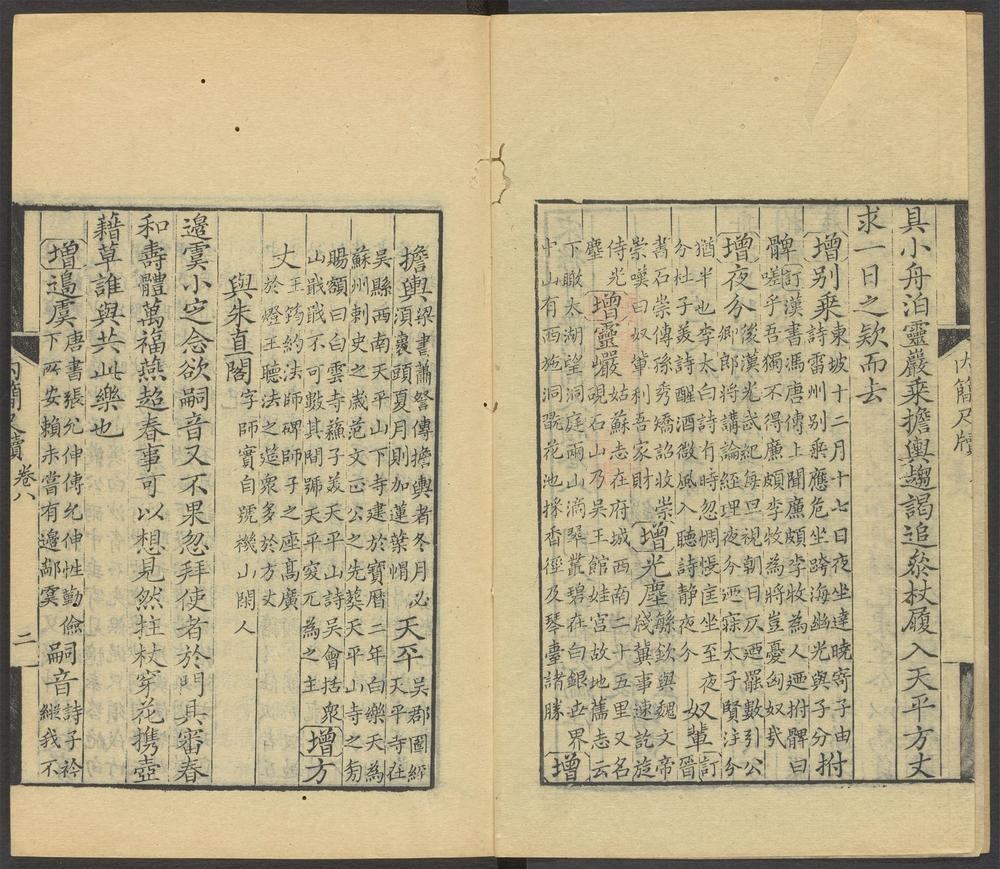 具小舟泊靈巖乘擔輿趨謁追叅杖履入天平方丈
求一日之欵而去
增別乘東坡十二月十七日夜坐達曉寄子由
詩雷州別乘應危坐跨海幽光與子分拊
髀訂漢書馮唐傳上聞廉頗李牧為人廼拊髀曰
嗟乎吾獨不得廉頗李牧為將豈憂匈奴㢤
增夜分後漢光武紀每旦視朝日仄廼罷數引公
卿郎將講論經理夜分廼寐太子賢注分
猶半也李太白詩有時忽惆悵匡坐至夜
分杜子羙詩醒酒微風入聽詩靜夜分奴輩訂晉
書石崇傳孫秀矯詔收崇
崇嘆曰奴輩利吾家財增光塵繇欽與魏文帝
牋冀事速訖旋
侍光
塵增靈巖姑蘇志在府城西南二十五里又名
硯石山乃吳王館娃宮故地舊志云
下瞰太湖望洞庭兩山滴翠叢碧在白銀世界
中山有西施洞翫花池採香徑及琴臺諸勝增
內簡尺牘
擔輿梁書蕭㫺傳擔輿者冬月必
須裹頭夏月則加蓮葉帽天平吳郡圖經
天平寺在
吳縣西南天平山下寺建於寶曆二年白樂天為
蘇州刺史之歲范文正公之先葬天平山寺之旁
賜額曰白雲寺蘇子羙天平山詩吳會括衆
山戢戢不可數其間號天平突兀為之主增方
丈王筠約法師碑師子之座高廣
於燈王聽法之筵衆多於方丈
與朱直閣字師實自號機山閒人
邉寞小定念欲嗣音又不果忽拜使者於門具審春
和壽體萬福燕超春事可以想見然拄杖穿花携壺
藉草誰與共此樂也
增邉虞唐書張允伸傳允伸性勤儉
下所安賴未嘗有邊鄙寞嗣音詩子衿
縱我不
內簡尺牘 卷八 二